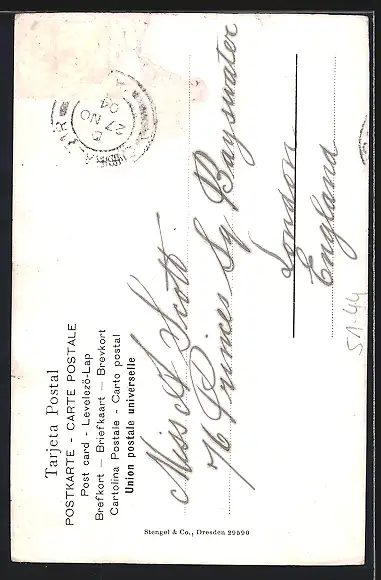 Tarjeta Postal
POSTKARTE - CARTE POSTALE
Post card - Levelező-Lap
Brefkort - Briefkaart - Brevkort
Cartolina Postale - Carto postal
Union postale universelle
Miss A Scott
76 Princes Sq Bayswater
London
England
Stengel & Co., Dresden 29590
5
27 NO
04
51-44